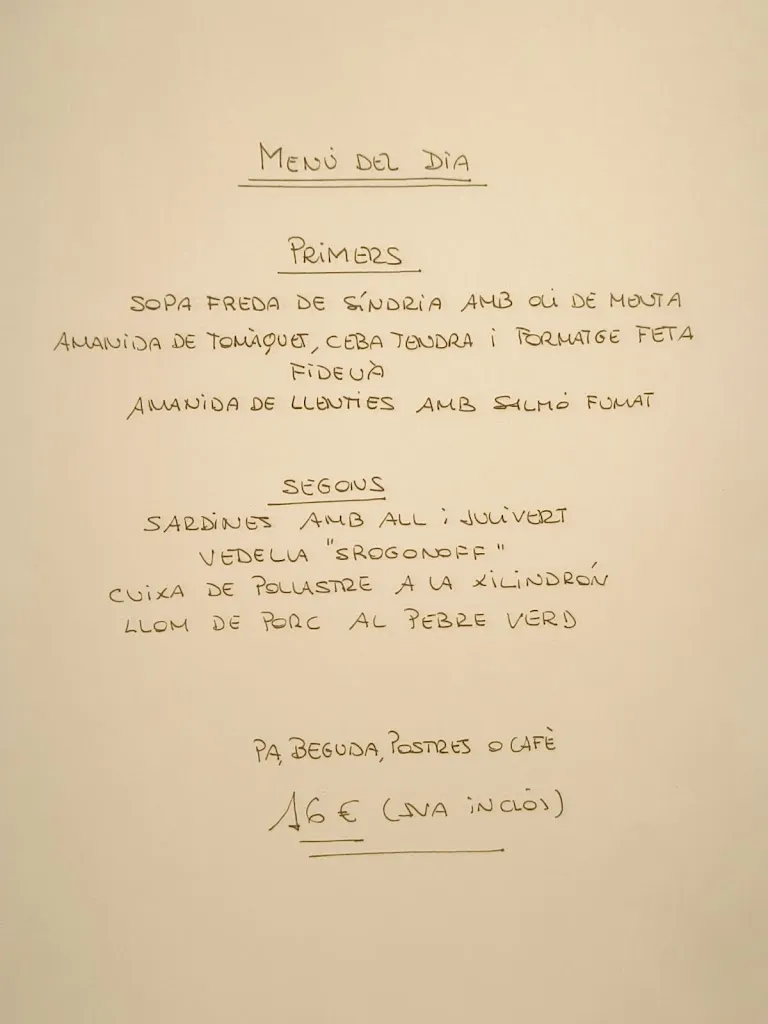 MENÚ DEL DIA
PRIMERS
SOPA FREDA DE SÍNDRIA AMB OLI DE MENTA
AMANIDA DE TOMÀQUET, CEBA TENDRA I FORMATGE FETA
FIDEUÀ
AMANIDA DE LLENTIES AMB SALMÓ FUMAT
SEGONS
SARDINES AMB ALL I JULIVERT
VEDELLA "SROGONOFF"
CUIXA DE POLLASTRE A LA XILINDRÓN
LLOM DE PORC AL PEBRE VERD
PA, BEGUDA, POSTRES O CAFÈ
16 € (IVA INCLÒS)